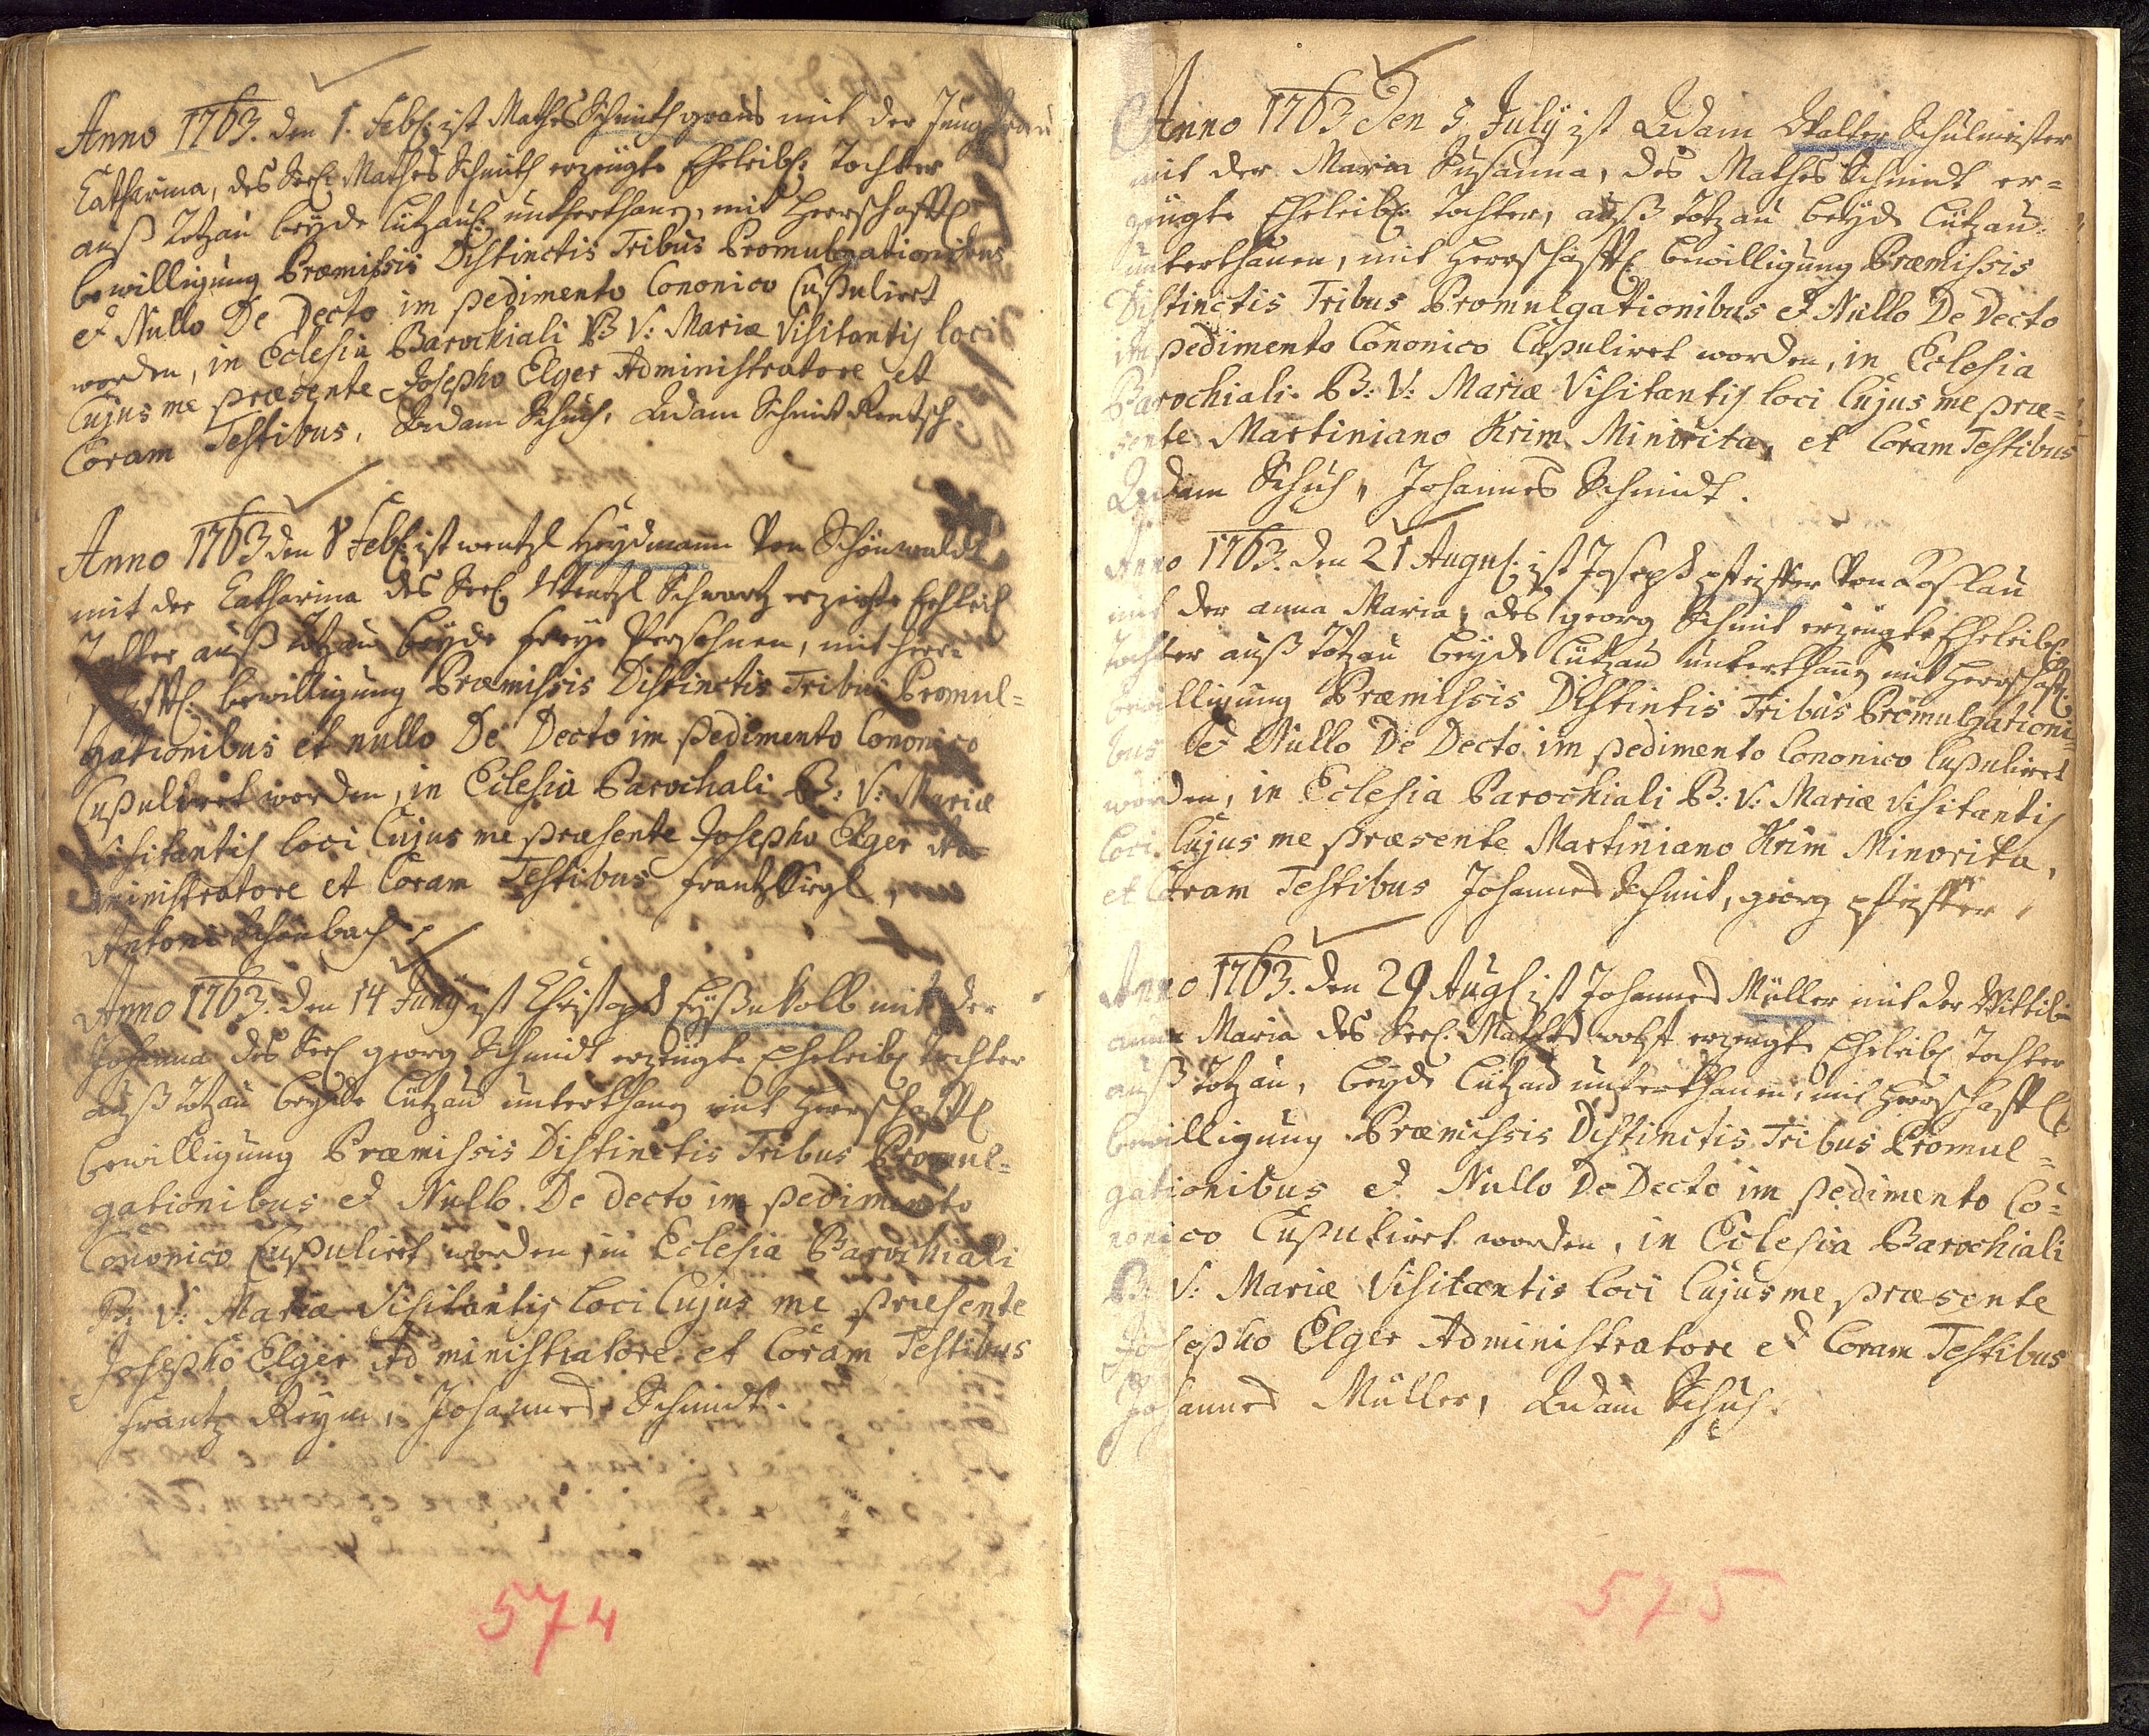 Anno 1763. den 1. Feb: ist Mathes Schmith grans mit der Jungfrau
Catharina, des Seel: Mathes Schmith erzeugte Eheleibl: Tochter
auß Totzau beyde Lützau: unterthanen, mit Herrschafftl
bewilligung Præmissis Distinctis Tribus Promulgationibus
et Nullo De Decto im pedimento Cononico Cupuliret
worden, in Eclesia Parochiali B V: Mariæ Visitantis loci
Cujus me præsente Josepho Elger Administratore et
Coram Testibus, Adam Schuh, Adam Schmit
Anno 1763 den 8 Feb: ist wentzl Heydmann Von Schönwaldt
mit der Catharina des Seel. Wentzl Schwartz erzeigte Ehleibl
Tochter auß Totzau beyde freye Persohnen, mit herr-
schafftl. bewilligung Præmissis Distinctis Tribus Promul=
gationibus et nullo De Decto im pedimento Cononico
Cupuliret worden, in Eclesia Parochali B: V: Mariæ
Visitantis loci Cujus me præsente Josepho Elger Ad=
ministratore et Coram Testibus frantz Sirgl,
Antoni Schönbach
Anno 1763. den 14 Juny ist Christoph Eyßnkolb mit der
Johanna des Seel georg Schmidt erzeugte Eheleibl Tochter
auß Totzau beyde Lützau unterthanen mit Herrschafftl
bewilligung Præmissis Distinctis Tribus Promul=
gationibus et Nullo De decto im pedimento
Cononico Cupuliret worden, in Eclesia Parochiali
B: V: Mariæ Visitantis loci Cujus me præsente
Josepho Elger Ad ministratore et Coram Testibus
frantz Reym, Johannes Schmidt.
574
Anno 1763 Den 5 July ist Adam Walter Schulmeister
mit der Maria Susanna, des Mathes Schmidt er=
zeugte Eheleibl: Tochter, auß Totzau beyde Lützau:
unterthanen, mit Herrschafftl bewilligung Præmissis
Distinctis Tribus Promulgationibus et Nullo De Decto
im pedimento Cononico Cupuliret worden, in Eclesia
Parochiali. B: V: Mariæ Visitantis loci Cujus me præ=
sente Martiniano Krim Minorita, et Coram Testibus
Adam Schuh, Johannes Schmidt.
Anno 1763. den 21 Augus: ist Joseph pfeiffer Von Koslau
mit der anna Maria, des georg Schmit erzeugte Eheleibl:
Tochter auß Totzau beyde Lützau unterthanen mit Herrschafftl
bewilligung Præmissis Distintis Tribus Promulgationi=
bus et Nullo De Decto im pedimento Cononico Cupuliret
worden, in Eclesia Parochiali B: V: Mariæ Visitantis
loci Cujus me præsente Martiniano Krim Minorita,
et Coram Testibus Johannes Schmit, georg pfeiffer
Anno 1763. den 29 Augl ist Johannes Müller mit der Wittib
anna Maria des Seel. Mathes wolf erzeugte Eheleibl Tochter
auß Totzau, beyde Lützau unterthanen, mit Herrschafftl
bewilligung Præmissis Distinctis Tribus Promul=
gationibus et Nullo De Decto im pedimento Co=
nonico Cupuliret worden, in Eclesia Parochiali
B: V: Mariæ Visitantis loci Cujus me præsente
Josepho Elger Administratore et Coram Testibus
Johannes Müller, Adam Schuh.
575